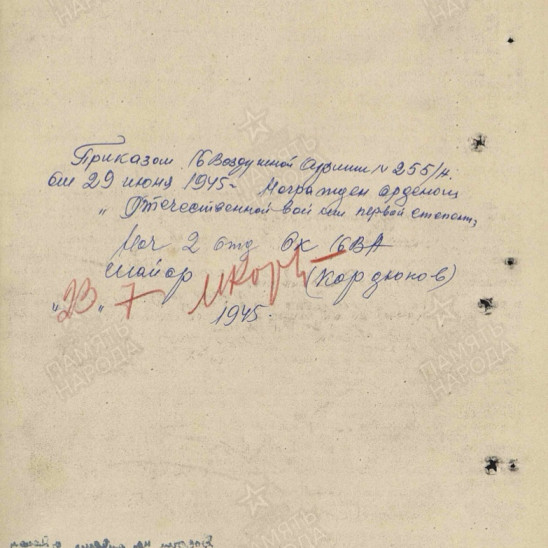 Приказом 16 Воздушной Армии N 255/н.
от 29 июня 1945г. Награжден орденом
„Отечественной войны первой степени„
Нач 2 отд ОК 16ВА
Майор (Кордюков)
"23" 7
1945.
ПАМЯТЬ НАРОДА
ПАМЯТЬ НАРОДА
ПАМЯТЬ НАРОДА